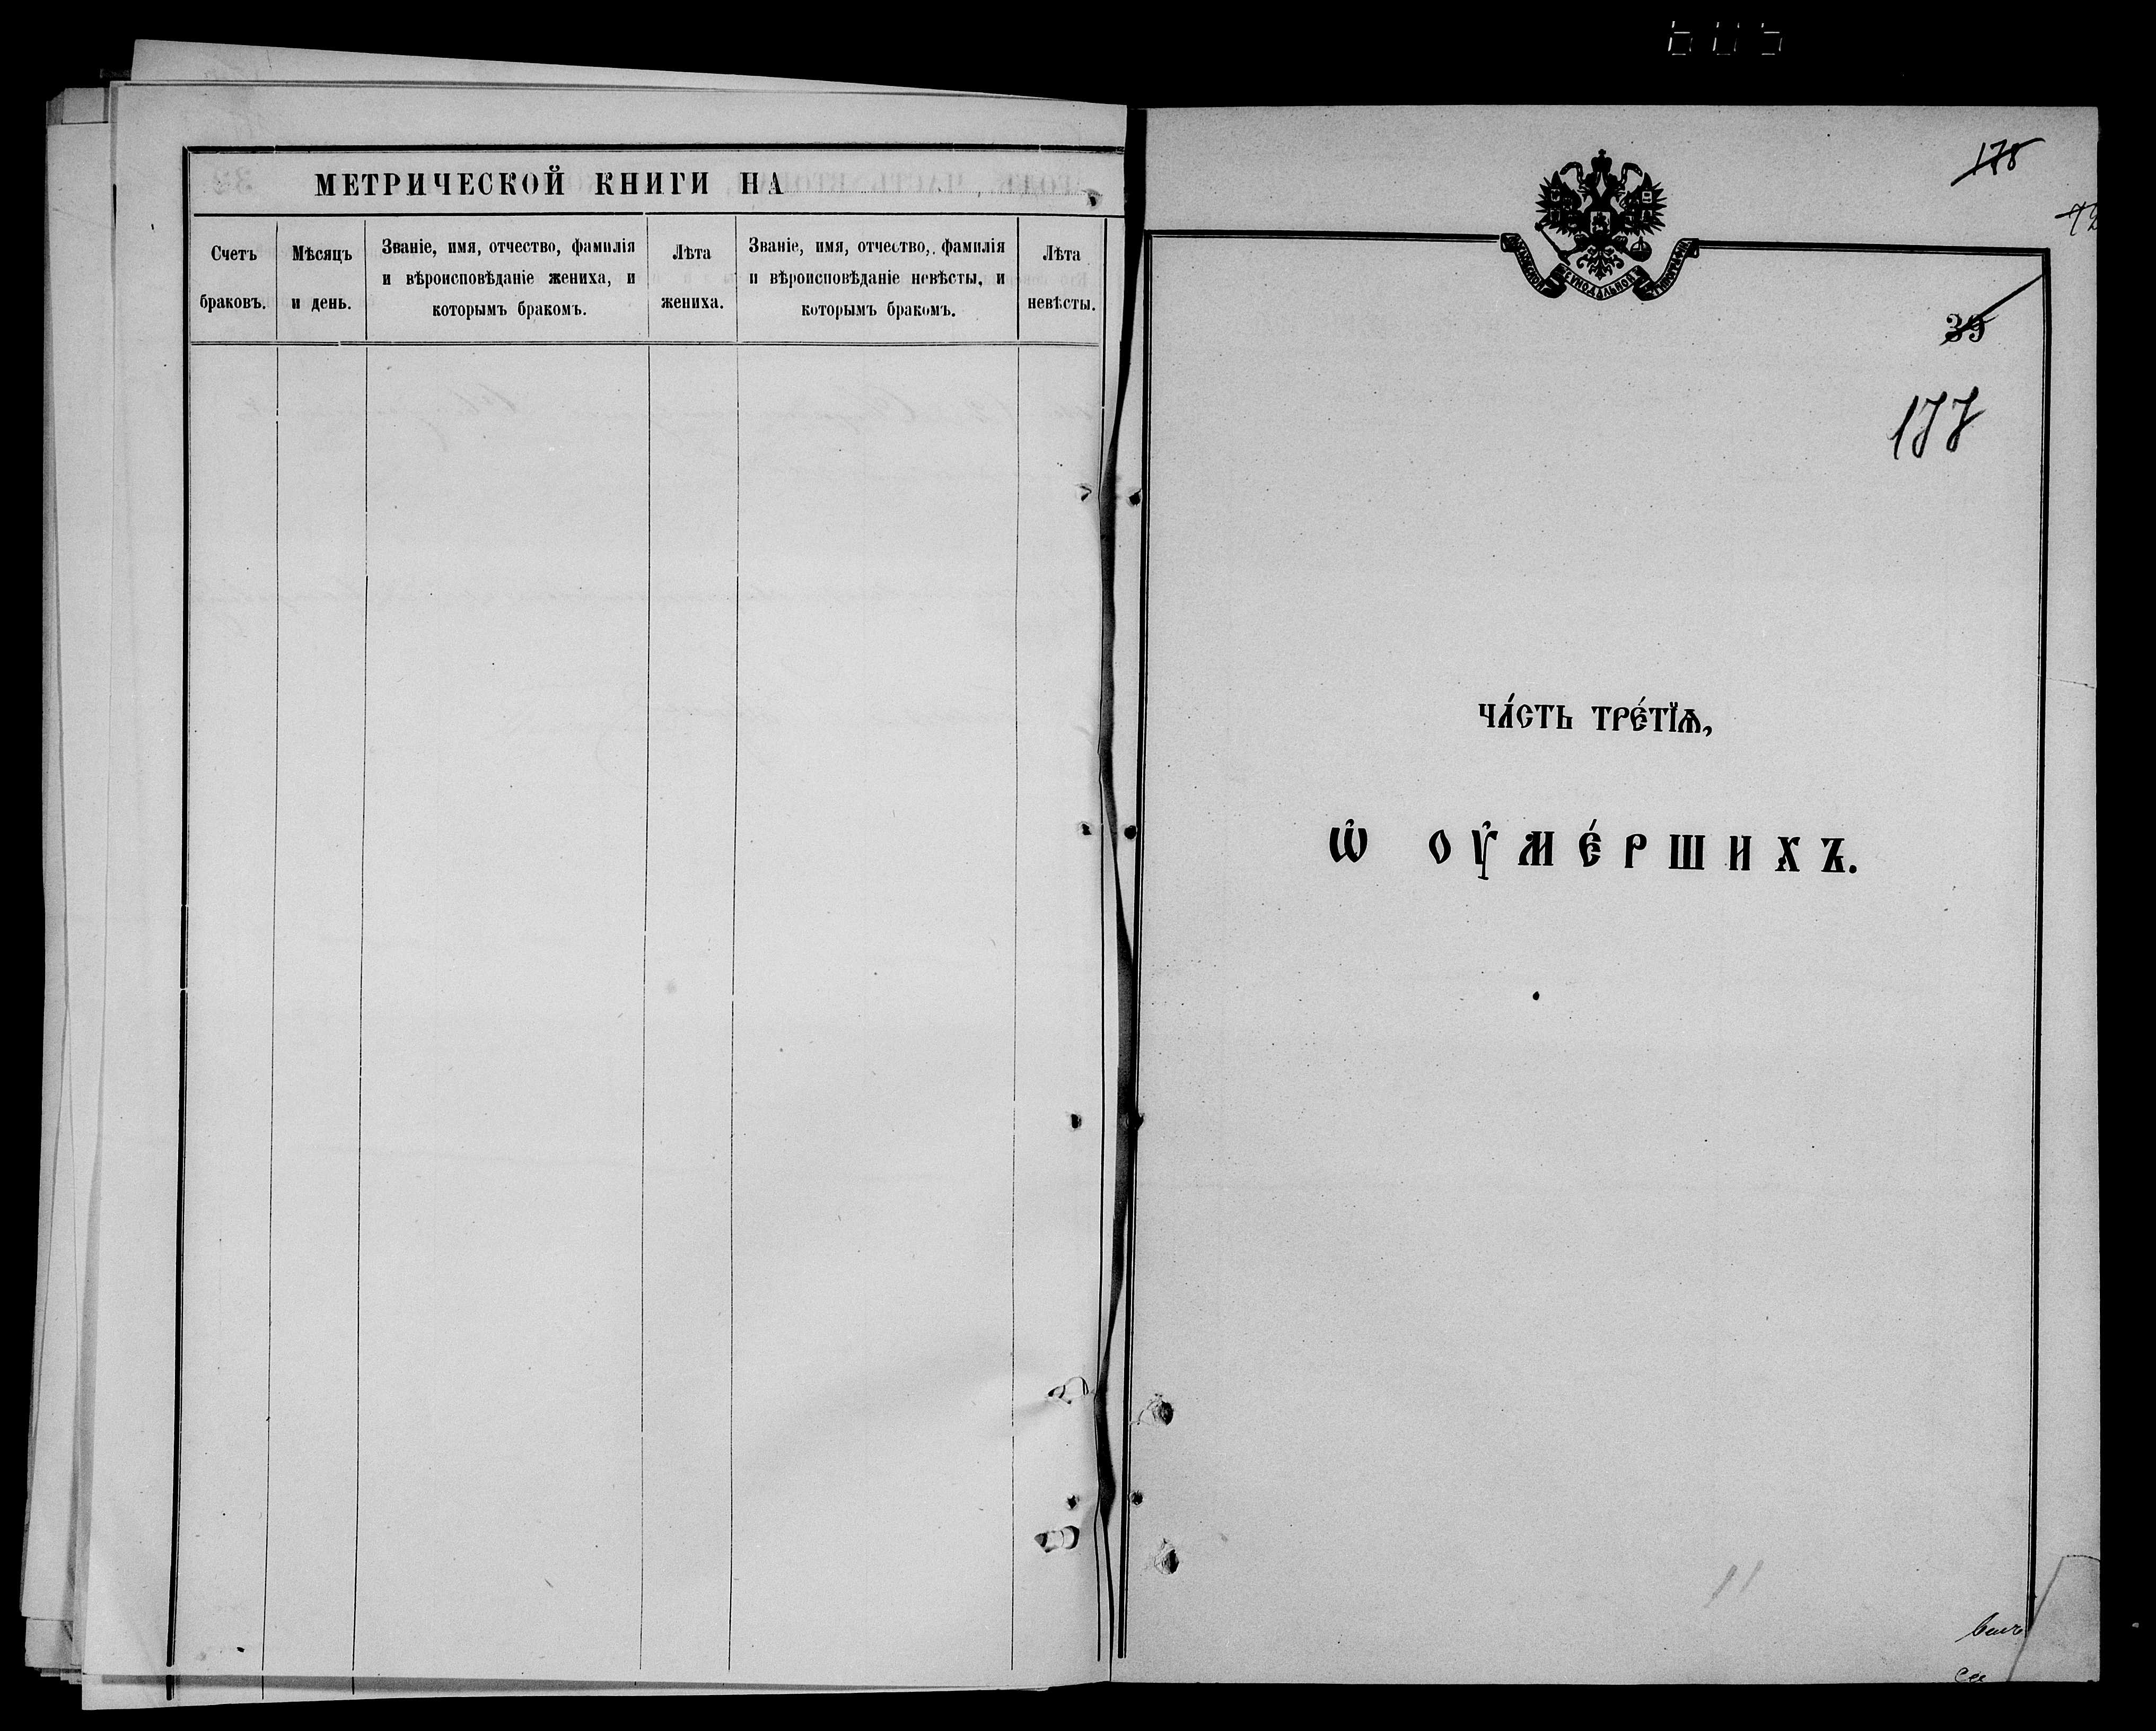 МЕТРИЧЕСКОЙ КНИГИ НА
Счетъ браковъ.
Мѣсяцъ и день.
Званіе, имя, отчество, фамилія
и вѣроисповѣданіе жениха, и
которымъ бракомъ.
Лѣта жениха.
Званіе, имя, отчество, фамилія
и вѣроисповѣданіе невѣсты, и
которымъ бракомъ.
Лѣта невѣсты.
178
39
177
ча́сть тре́тїѧ,
Ѡ҆ оу҆ме́ршихъ.